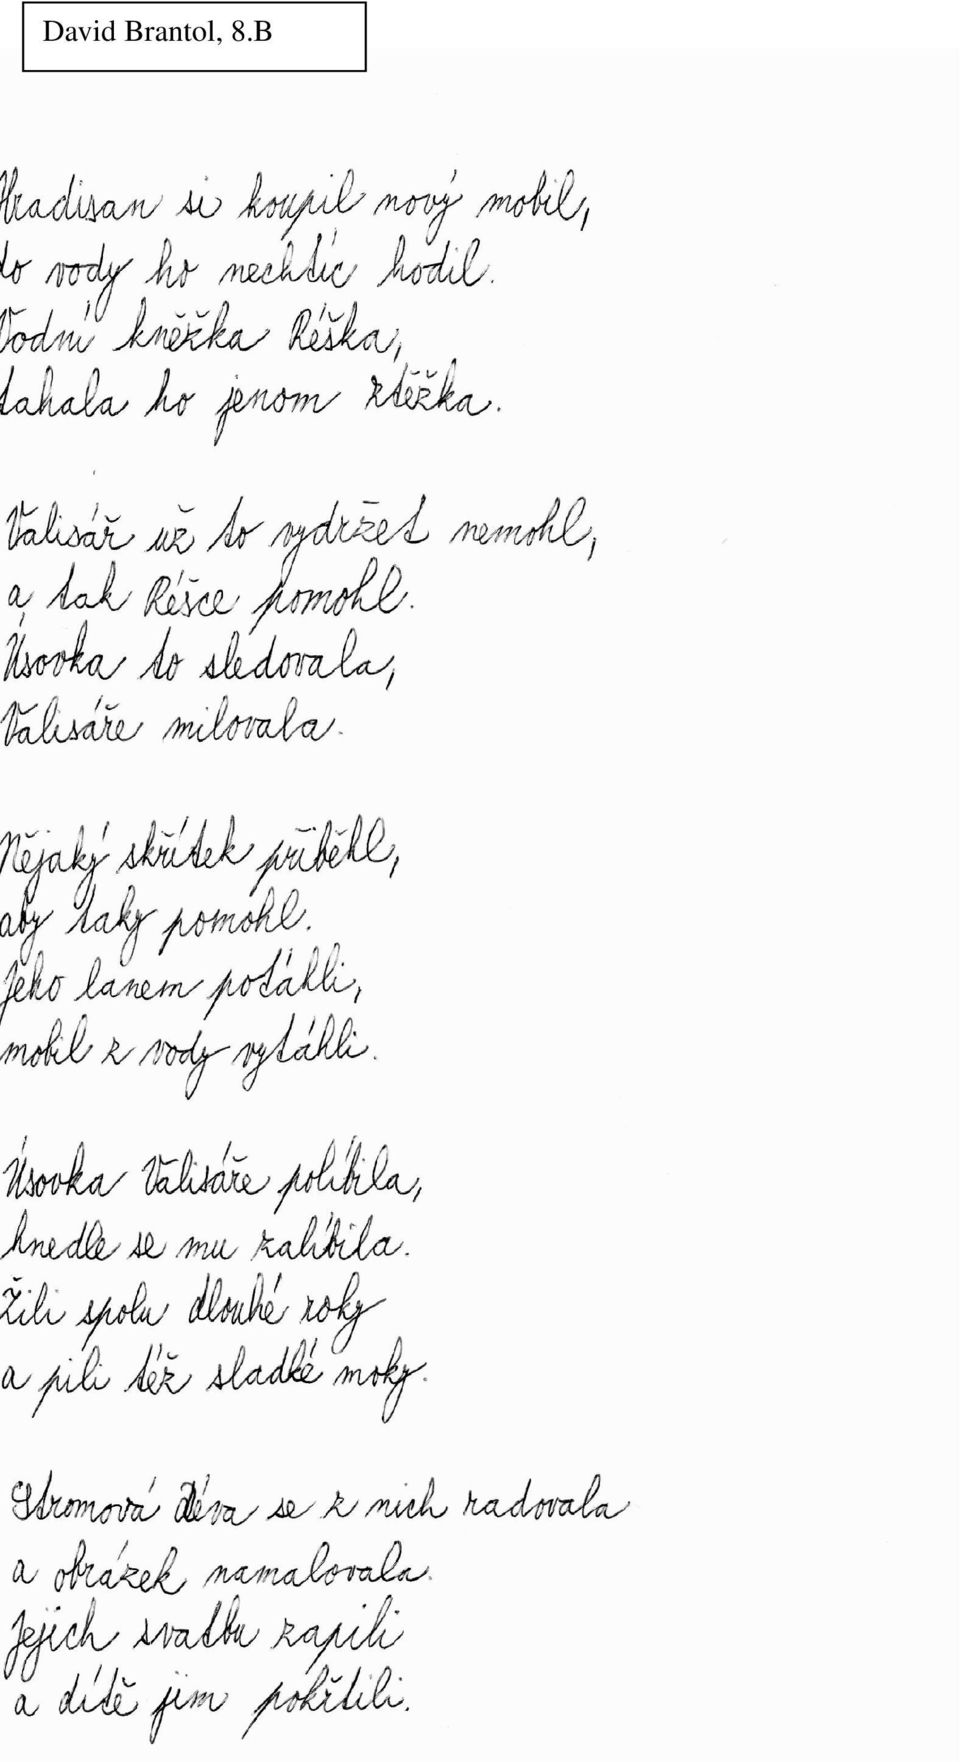 David Brantol, 8.B
Hradisan si koupil nový mobil,
do vody ho nechtíc hodil.
Vodní kněžka Réška,
tahala ho jenom ztěžka.
Valisář už to vydržet nemohl,
a tak Réšce pomohl.
Úsovka to sledovala,
Valisáře milovala.
Nějaký skřítek přiběhl,
aby taky pomohl.
Jeho lanem potáhli,
mobil z vody vytáhli.
Úsovka Valisáře políbila,
hnedle se mu zalíbila.
Žili spolu dlouhé roky
a pili též sladké moky.
Stromová déva se z nich radovala
a obrázek namalovala.
Jejich svatbu zapili
a dítě jim pokřtili.